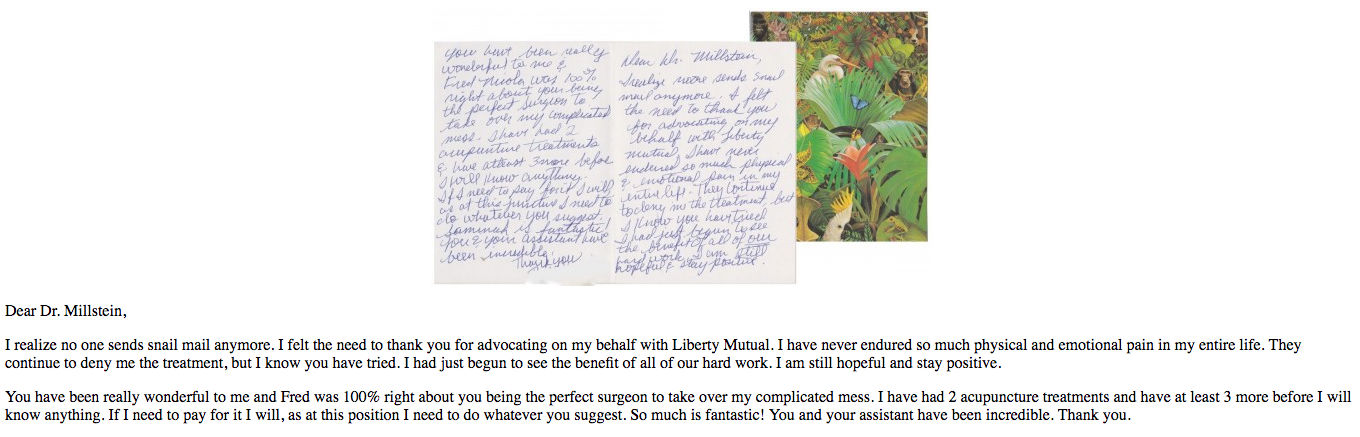 Dear Dr. Millstein,
I realize noone sends snail
mail anymore. I felt
the need to thank you
for advocating on my
behalf with Liberty
Mutual. I have never
endured so much physical
& emotional pain in my
entire life. They continue
to deny me the treatment, but
I know you have tried
I had just begun to see
the benefit of all of our
hard work. I am still
hopeful & stay positive.
You have been really
wonderful to me &
Fred Nicola was 100%
right about your being
the perfect surgeon to
take over my complicated
mess. I have had 2
acupuncture treatments
& have atleast 3 more before
I will know anything.
If I need to pay for it I will
as at this juncture I need to
do whatever you suggest.
is fantastic!
You & your assistant have
been incredible.
Thank you
Dear Dr. Millstein,
I realize no one sends snail mail anymore. I felt the need to thank you for advocating on my behalf with Liberty Mutual. I have never endured so much physical and emotional pain in my entire life. They
continue to deny me the treatment, but I know you have tried. I had just begun to see the benefit of all of our hard work. I am still hopeful and stay positive.
You have been really wonderful to me and Fred was 100% right about you being the perfect surgeon to take over my complicated mess. I have had 2 acupuncture treatments and have at least 3 more before I will
know anything. If I need to pay for it I will, as at this position I need to do whatever you suggest. So much is fantastic! You and your assistant have been incredible. Thank you.